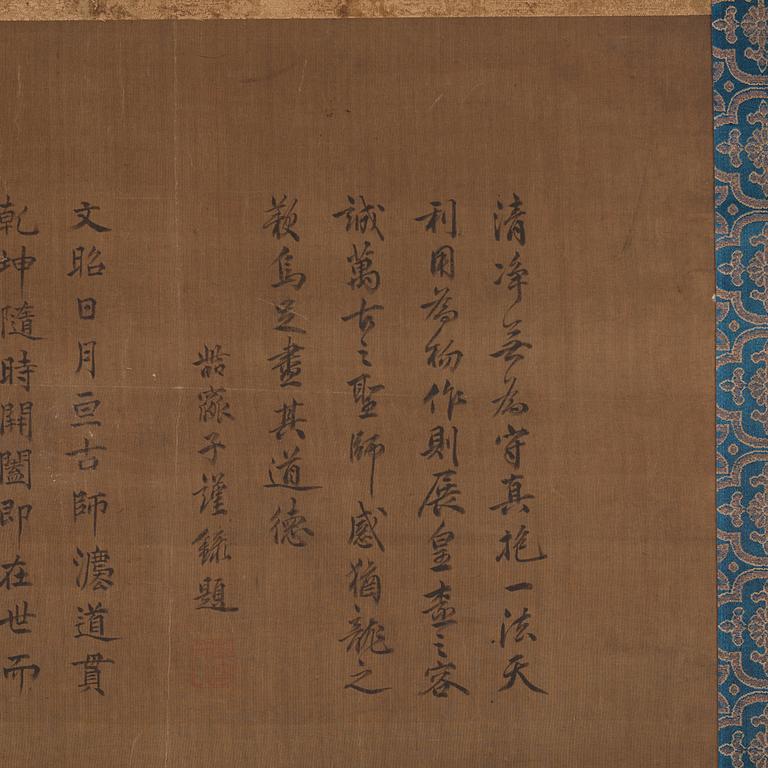 清净無為守真抱一法天
利用為物作則展皇盡之容
誠萬古之聖師感猶龍之
歎烏足盡其道德
子謹錄題
文昭日月亘古師灋道貫
乾坤隨時開闔即在世而